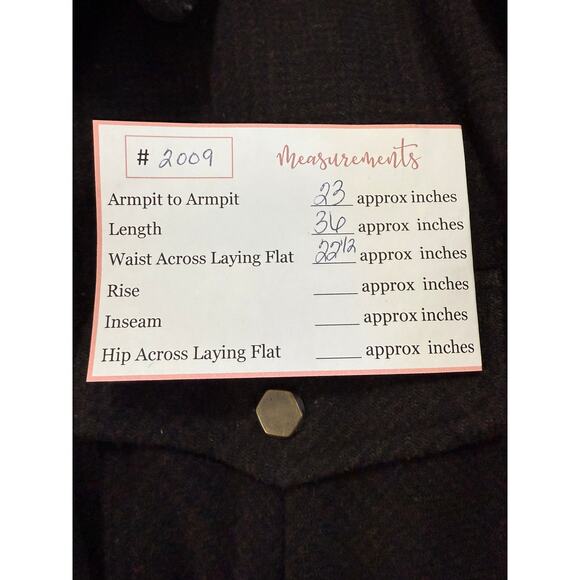 # 2009
Measurements
Armpit to Armpit 23 approx inches
Length 36 approx inches
Waist Across Laying Flat 22 1/2 approx inches
Rise ____ approx inches
Inseam ____ approx inches
Hip Across Laying Flat ____ approx inches